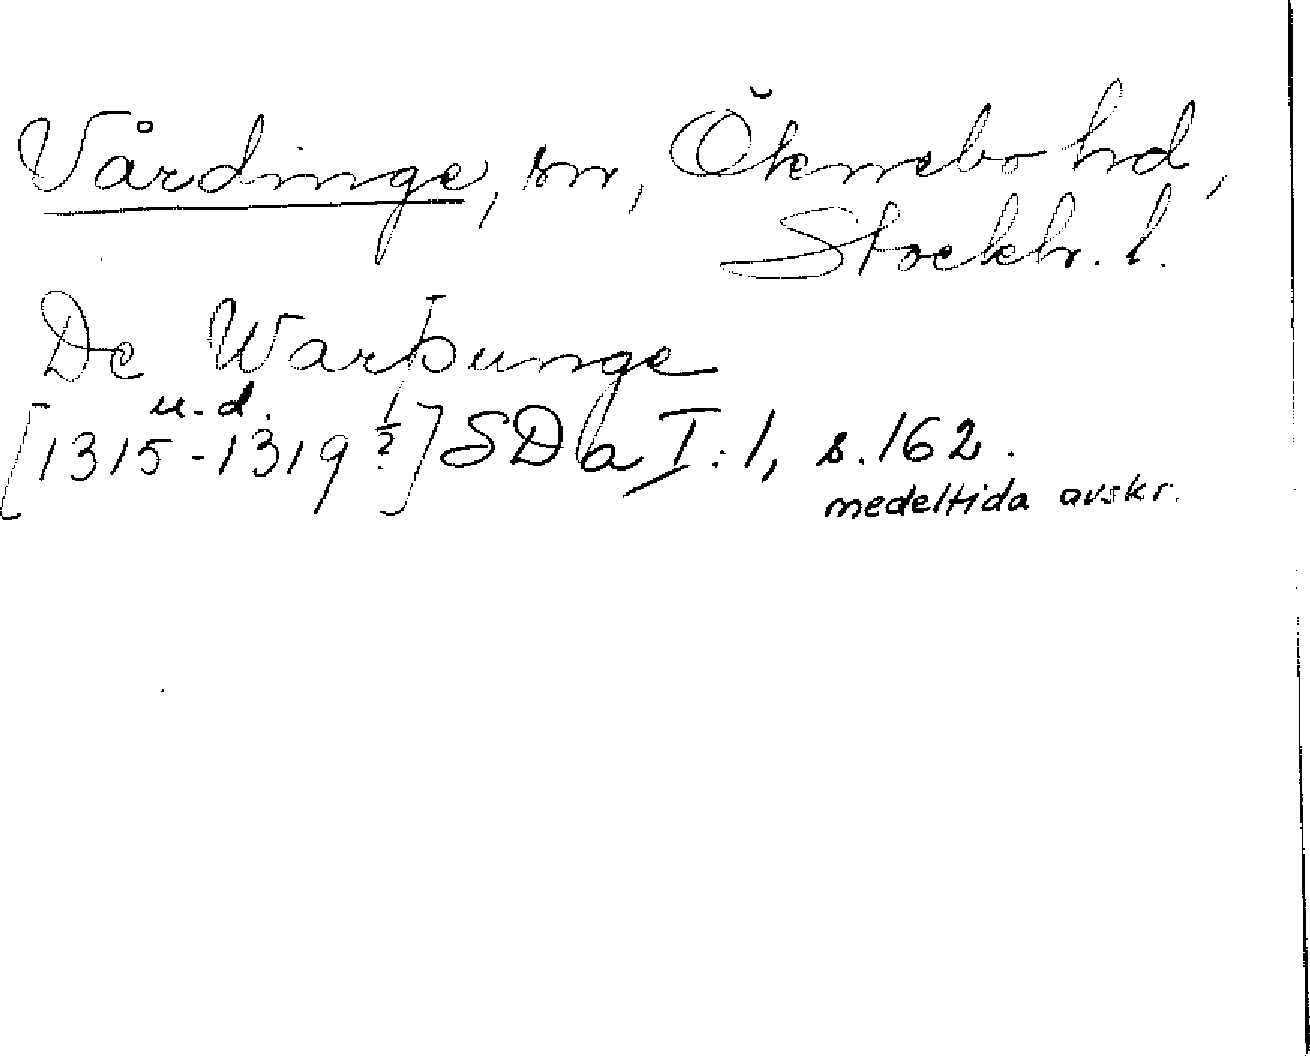 Vårdinge, sn, Öknebo hd,
Stockh. l.
De Warþunge
u. d.
[1315-1319?] SDa I:1, s. 162.
medeltida avskr.